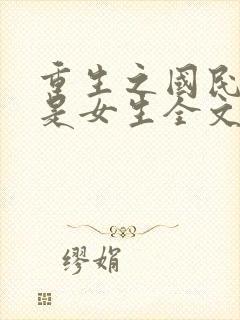 重生之國民
是女生全文
繆娟